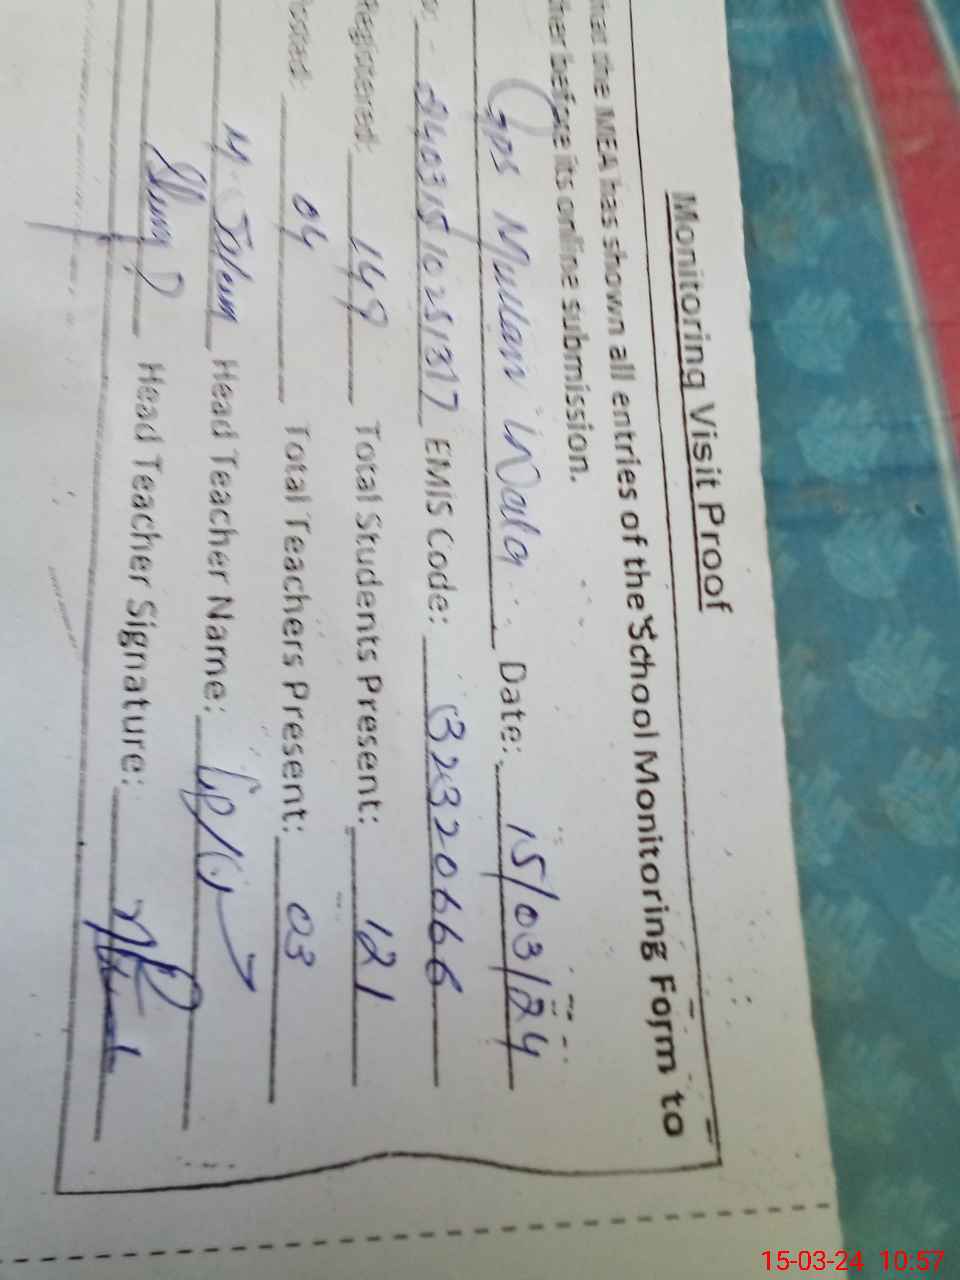 Monitoring Visit Proof
the MEA has shown all entries of the School Monitoring Form to
her before its online submission.
Gps Mullan Wala Date: 15/03/24
24031510251317 EMIS Code: 32320666
Registered: 149 Total Students Present: 121
Posted: 04 Total Teachers Present: 03
M. Saleem Head Teacher Name:
Head Teacher Signature:
15-03-24 10:57